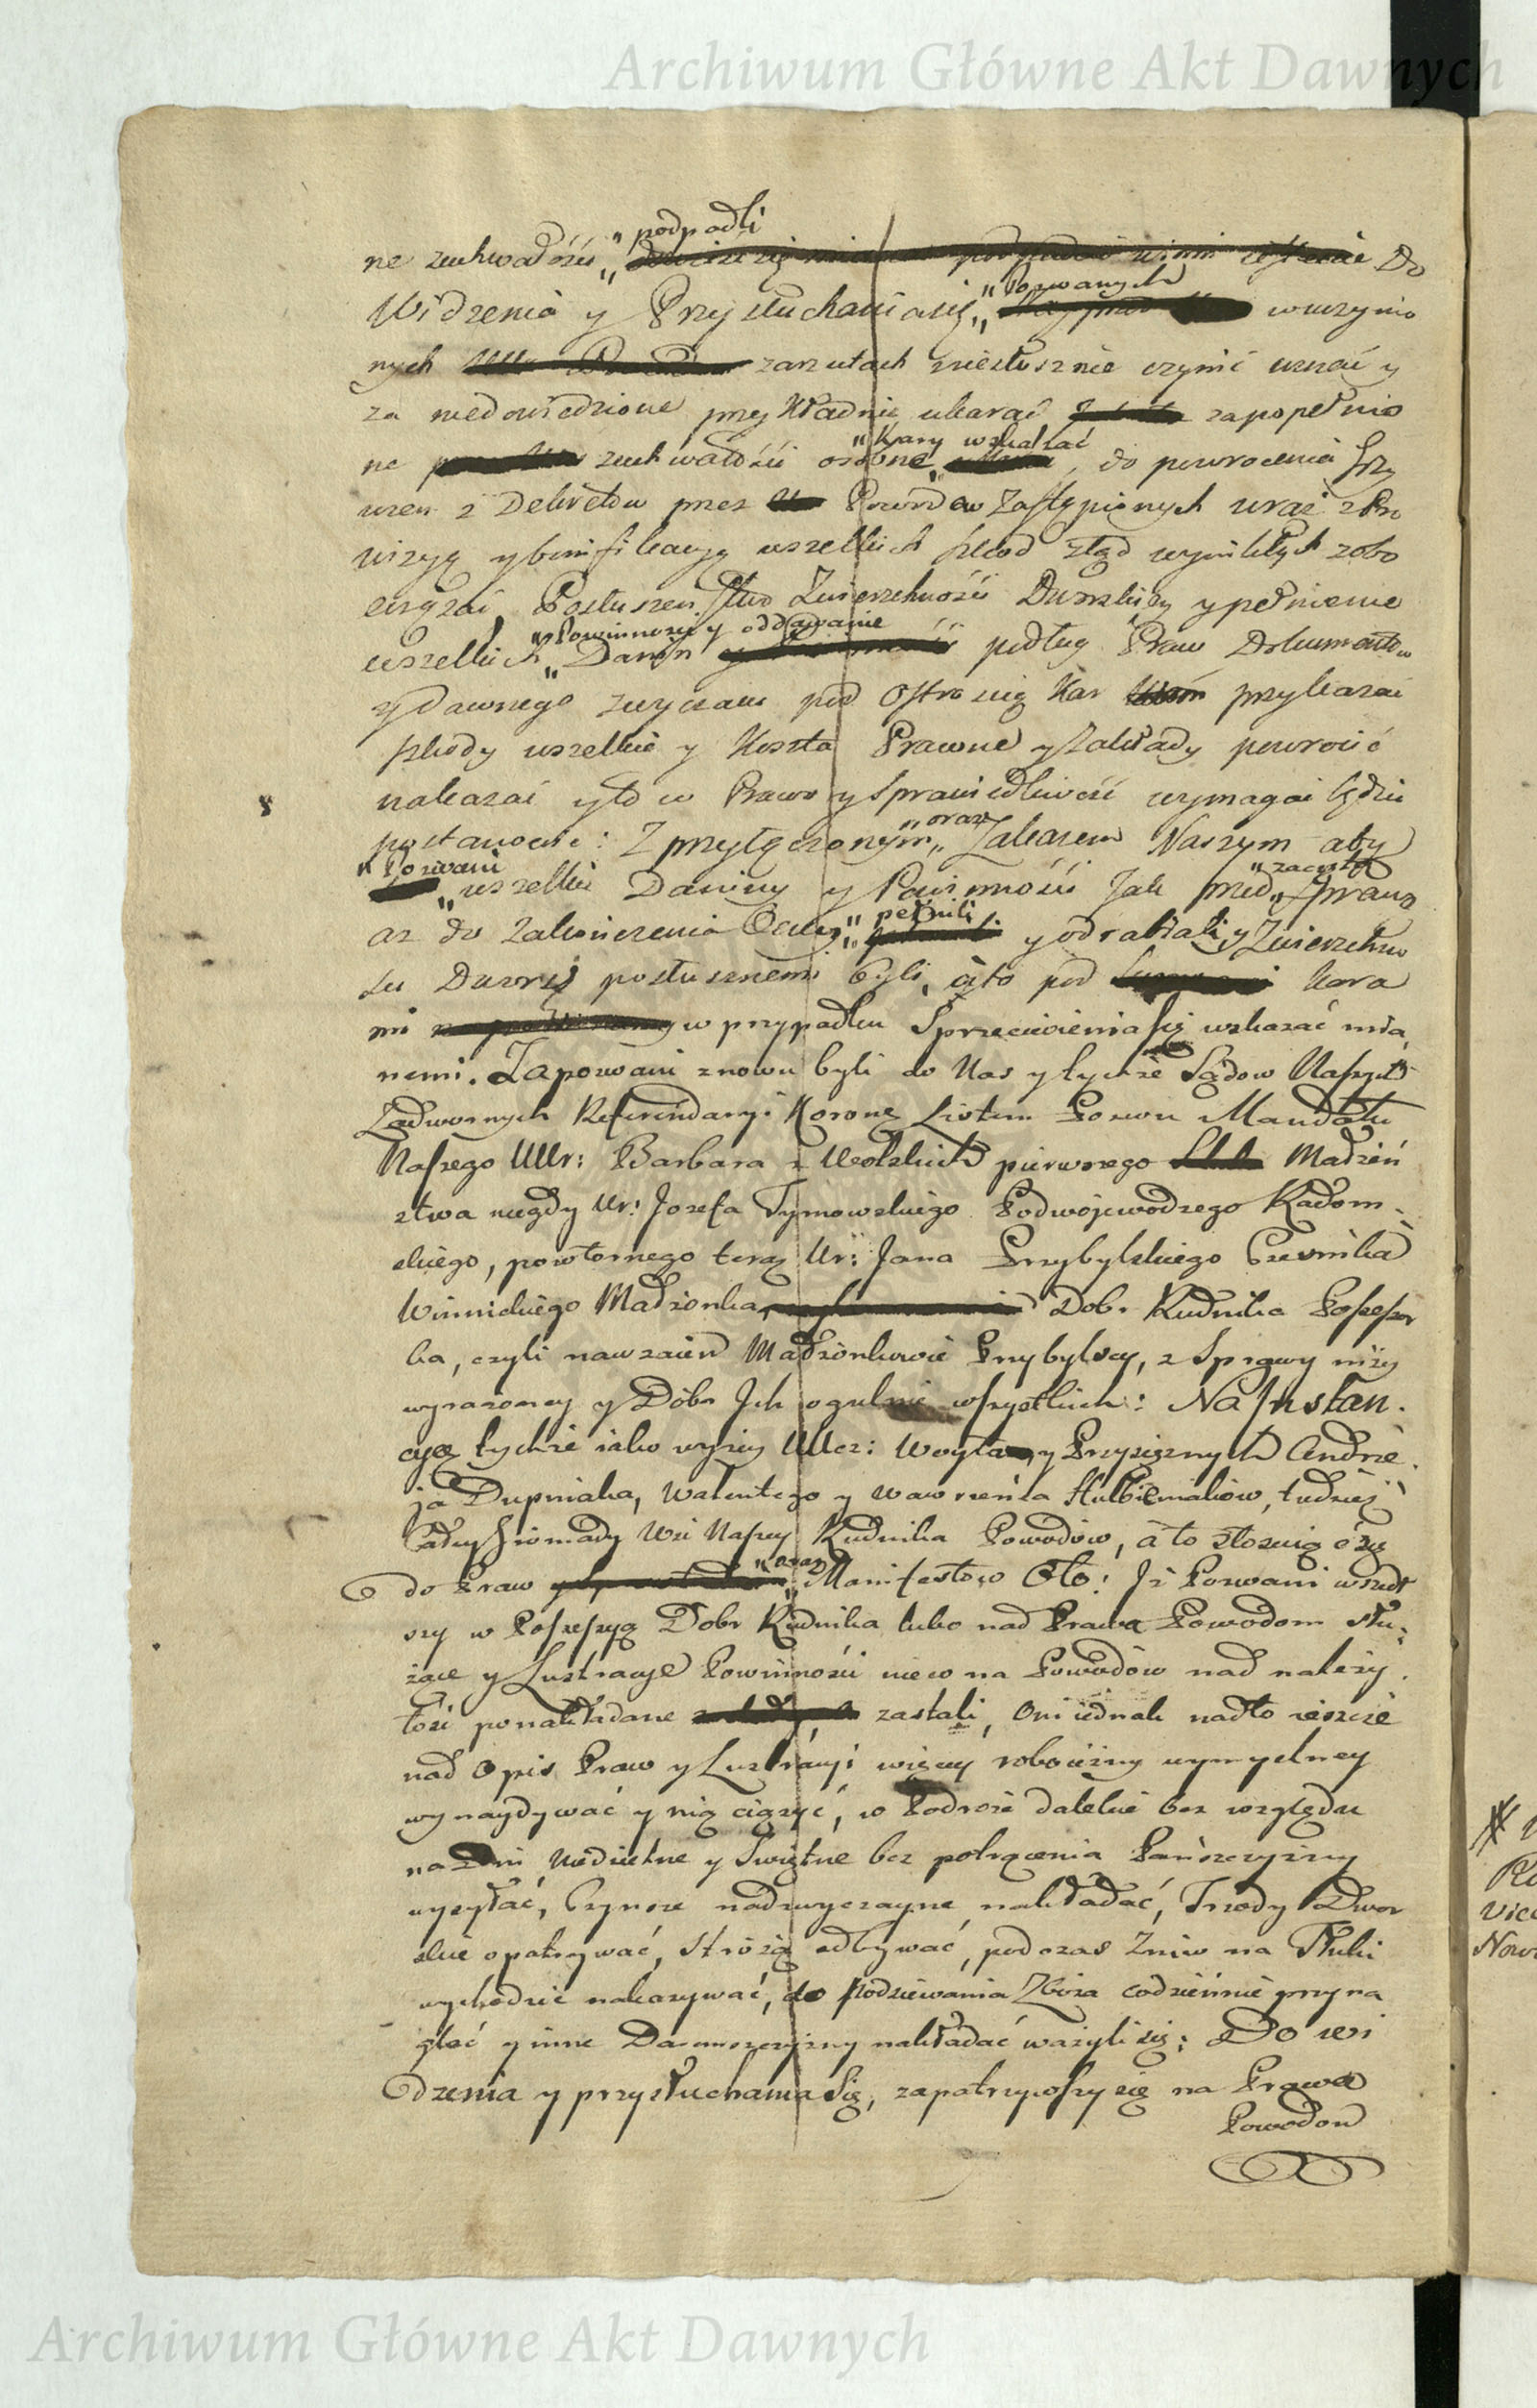 Archiwum Główne Akt Dawnych
podpadli
ne zuchwałości Do
Pozwanych
Widzenia y Przysłuchania się, wuczynio
nych zarzutach niesłusznie czynić uznać y
za niedowiedzione przykładnie ukarać zapopełnio
Kary wskazać
ne zuchwałości osobne, do powrocenia Grzy
wien z Dekretow przez Powodow Zastąpionych wraz zPro
wizyą y bonifikacyą wszelkich szkod ztąd wynikłych zobo
wiązać, Posłuszeństwo Zwierzchności Dworskiey y pełnienie
Powinności y oddawanie
wszelkich Danin podług Praw Dokumentow
y Dawnego zwyczaiu pod Ostrością Kar przykazać
szkody wszelkie y Koszta Prawne y Zakłady powrocić
nakazać y to co Prawo y Sprawiedliwość wymagać będzie
oraz
postanowić: Z przyłączonym Zakazem Naszym aby
Pozwani zaczętą
wszelkie Daniny y Powinności Jak przed Sprawą
pełnili
az do Zakonczenia Oney y odrabiali y Zwierzchno
sci Dworsj posłusznemi byli, à to pod Kara
mi w przypadku Sprzeciwienia się wskazać mia
nemi. Zapozwani znowu byli do Nas y tychże Sądow Naszych
Zadwornych Referendaryi Koronej Listem Pozwu Mandatu
Naszego UUr: Barbara z Wolskich pierwszego Małżeń
stwa niegdy Ur: Jozefa Tymowskiego Podwojewodzego Radom-
skiego, powtornego teraz Ur: Jana Przybylskiego Czesnika
Winnickiego Małżonka, Dobr Rudnika Possessor
ka, czyli nawzaiem Małżonkowie Przybylscy, z Sprawy niżey
wyrażoney y Dobr Jch ogulnie wszystkich: Na Jnstan-
cyą tychże iako wyżey UUcz: Woyta y Przysięznych Andrze-
ja Dupniaka, Walentego y Wawrzeńca tudzież
Całey Gromady Wsi Naszey Rudnika Powodow, à to stosuiąc się
oraz
do Praw Manifestow Oto: Jż Pozwani wszedł
szy w Possessyą Dobr Rudnika lubo nad Prawa Powodom słu-
żące y Lustracye Powinności nieco na Powodow nad należy-
tość ponakładane zastali, Oni iednak nadto ieszcze
nad Opis Praw y Lustracyi więcey robocizny wymyslney
wynaydywać y nią ciążyć, w Podroże dalekie bez względu
na Dni Niedzielne y Swiętne bez potrącenia Pańszczyzny
wysyłać, Czynsze nadzwyczayne nakładać, Trzody Dwor
skie opatrywać, Stróżą odbywać, podczas Zniw na Tłuki
wychodzić nakazywać, do podsiewania Zboża codziennie przyna
glać y inne Darmoszczyzny nakładać ważyli się: Do wi
dzenia y przysłuchania Się, zapatrzywszy się na Prawa
Powodom
Archiwum Główne Akt Dawnych